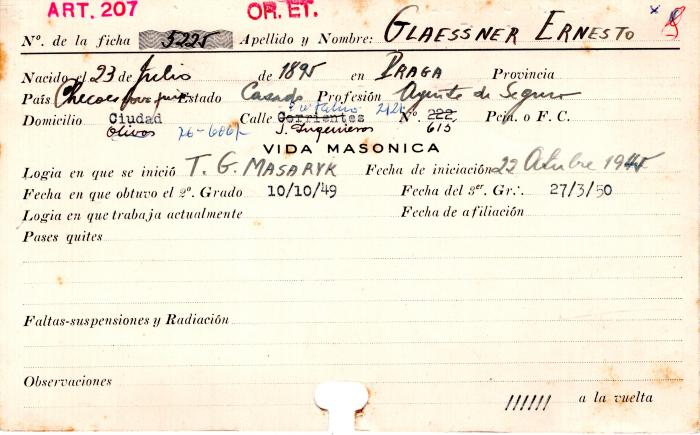 ART. 207 OR. ET.
Nº. de la ficha 5225 Apellido y Nombre: GLAESSNER ERNESTO
Nacido el 23 de Julio de 1895 en PRAGA Provincia
País Checoeslovaquia Estado Casado Profesión Agente de Seguro
Domicilio Ciudad Calle Corrientes Nº. 222 Pcia. o F. C.
Olivos J. Ingenieros 615
VIDA MASONICA
Logia en que se inició T. G. MASARYK Fecha de iniciación 22 Octubre 1945
Fecha en que obtuvo el 2º. Grado 10/10/49 Fecha del 3er. Gr∴ 27/3/50
Logia en que trabaja actualmente Fecha de afiliación
Pases quites
Faltas-suspensiones y Radiación
Observaciones
////// a la vuelta